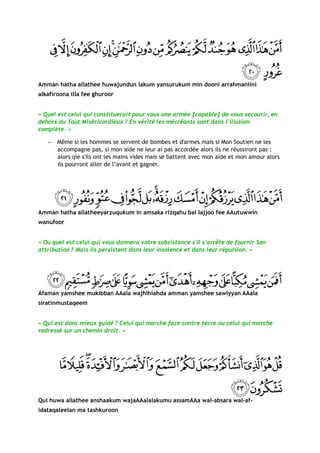 أَمَّنْ هَٰذَا ٱلَّذِى هُوَ جُندٌ لَّكُمْ يَنصُرُكُم مِّن دُونِ ٱلرَّحْمَٰنِ ۚ إِنِ ٱلْكَٰفِرُونَ إِلَّا فِى
غُرُورٍ ٢٠
Amman hatha allathee huwajundun lakum yansurukum min dooni arrahmaniini
alkafiroona illa fee ghuroor
« Quel est celui qui constituerait pour vous une armée [capable] de vous secourir, en
dehors du Tout Miséricordieux ? En vérité les mécréants sont dans l'illusion
complète. «
– Même si les hommes se servent de bombes et d'armes mais si Mon Soutien ne les
accompagne pas, si mon aide ne leur ai pas accordée alors ils ne réussiront pas ;
alors qie s'ils ont les mains vides mais se battent avec mon aide et mon amour alors
ils pourront aller de l'avant et gagner.
أَمَّنْ هَٰذَا ٱلَّذِى يَرْزُقُكُمْ إِنْ أَمْسَكَ رِزْقَهُۥ ۚ بَل لَّجُّوا۟ فِى عُتُوٍّ وَنُفُورٍ ٢١
Amman hatha allatheeyarzuqukum in amsaka rizqahu bal lajjoo fee AAutuwwin
wanufoor
« Ou quel est celui qui vous donnera votre subsistance s'il s'arrête de fournir Son
attribution ? Mais ils persistent dans leur insolence et dans leur répulsion. «
أَفَمَن يَمْشِى مُكِبًّا عَلَىٰ وَجْهِهِۦٓ أَهْدَىٰٓ أَمَّن يَمْشِى سَوِيًّا عَلَىٰ صِرَٰطٍ مُّسْتَقِيمٍ ٢٢
Afaman yamshee mukibban AAala wajhihiahda amman yamshee sawiyyan AAala
siratinmustaqeem
« Qui est donc mieux guidé ? Celui qui marche face contre terre ou celui qui marche
redressé sur un chemin droit. «
قُلْ هُوَ ٱلَّذِىٓ أَنشَأَكُمْ وَجَعَلَ لَكُمُ ٱلسَّمْعَ وَٱلْأَبْصَٰرَ وَٱلْأَفْـِٔدَةَ ۖ قَلِيلًا مَّا
تَشْكُرُونَ ٢٣
Qul huwa allathee anshaakum wajaAAalalakumu assamAAa wal-absara wal-af-
idataqaleelan ma tashkuroon